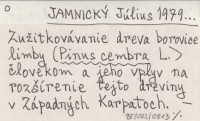 JAMNICKÝ Július 1979...
Zužitkovávanie dreva borovice
limby (Pinus cembra L.)
človekom a jeho vplyv na
rozšírenie tejto dreviny
v Západných Karpatoch. –